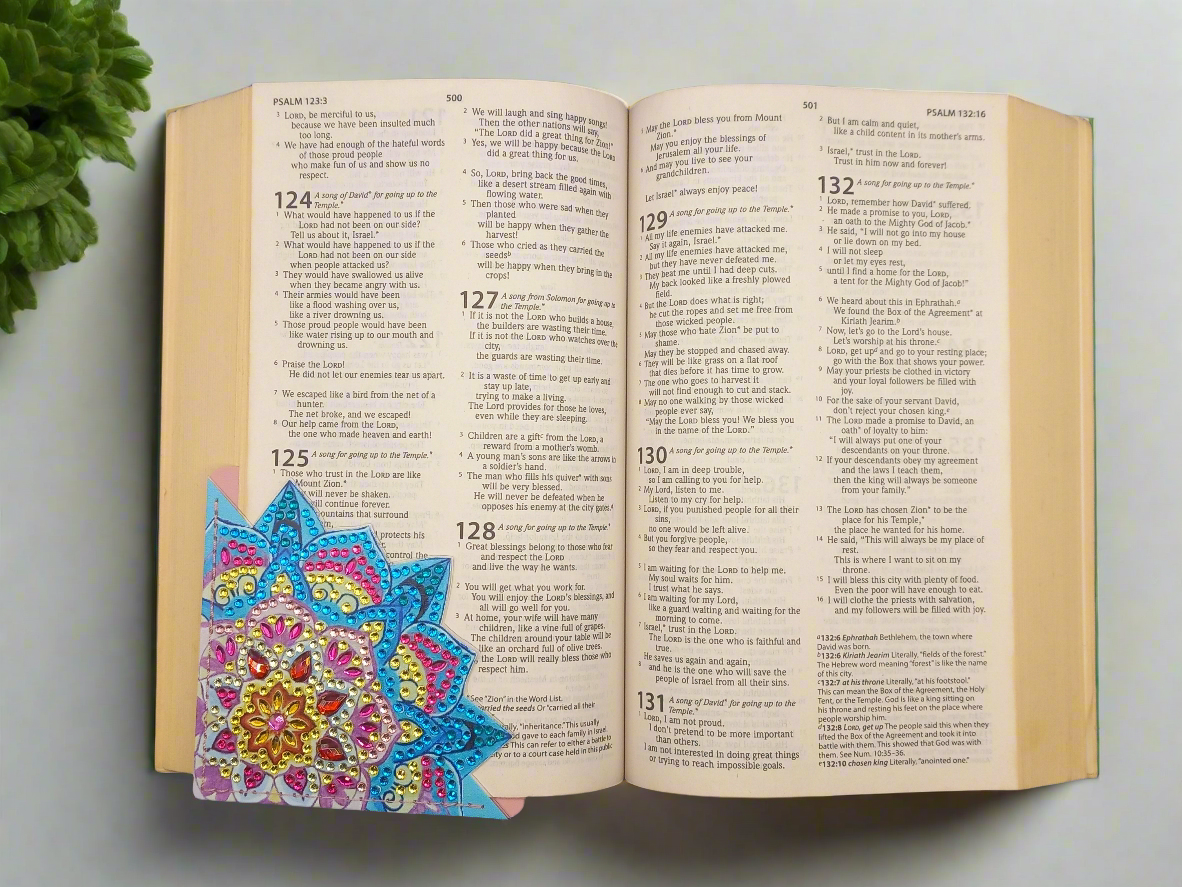 PSALM 123:3
500
3 LORD, be merciful to us,
because we have been insulted much
too long.
4 We have had enough of the hateful words
of those proud people
who make fun of us and show us no
respect.
124 A song of David* for going up to the
Temple.*
1 What would have happened to us if the
LORD had not been on our side?
Tell us about it, Israel.*
2 What would have happened to us if the
LORD had not been on our side
when people attacked us?
3 They would have swallowed us alive
when they became angry with us.
4 Their armies would have been
like a flood washing over us,
like a river drowning us.
5 Those proud people would have been
like water rising up to our mouth and
drowning us.
6 Praise the LORD!
He did not let our enemies tear us apart.
7 We escaped like a bird from the net of a
hunter.
The net broke, and we escaped!
8 Our help came from the LORD,
the one who made heaven and earth!
125 A song for going up to the Temple.*
1 Those who trust in the LORD are like
Mount Zion.*
will never be shaken.
will continue forever.
ountains that surround
protects his
control the
2 We will laugh and sing happy songs!
Then the other nations will say,
"The LORD did a great thing for Zion!"
3 Yes, we will be happy because the LORD
did a great thing for us.
4 So, LORD, bring back the good times,
like a desert stream filled again with
flowing water.
5 Then those who were sad when they
planted
will be happy when they gather the
harvest!
6 Those who cried as they carried the
seeds b
will be happy when they bring in the
crops!
127 A song from Solomon for going up to
the Temple.*
1 If it is not the LORD who builds a house,
the builders are wasting their time.
If it is not the LORD who watches over the
city,
the guards are wasting their time.
2 It is a waste of time to get up early and
stay up late,
trying to make a living.
The Lord provides for those he loves,
even while they are sleeping.
3 Children are a gift c from the LORD, a
reward from a mother's womb.
4 A young man's sons are like the arrows in
a soldier's hand.
5 The man who fills his quiver* with sons
will be very blessed.
He will never be defeated when he
opposes his enemy at the city gates. d
128 A song for going up to the Temple.*
1 Great blessings belong to those who fear
and respect the LORD
and live the way he wants.
2 You will get what you work for.
You will enjoy the LORD's blessings, and
all will go well for you.
3 At home, your wife will have many
children, like a vine full of grapes.
The children around your table will be
like an orchard full of olive trees.
the LORD will really bless those who
respect him.
See "Zion" in the Word List.
rried the seeds Or "carried all their
ally, "inheritance." This usually
d gave to each family in Israel.
This can refer to either a battle to
ty or to a court case held in this public
501
PSALM 132:16
May the LORD bless you from Mount
Zion.*
May you enjoy the blessings of
Jerusalem all your life.
6 And may you live to see your
grandchildren.
Let Israel* always enjoy peace!
129 A song for going up to the Temple.*
1 All my life enemies have attacked me.
Say it again, Israel.*
2 All my life enemies have attacked me,
but they have never defeated me.
3 They beat me until I had deep cuts.
My back looked like a freshly plowed
field.
4 But the LORD does what is right;
he cut the ropes and set me free from
those wicked people.
5 May those who hate Zion* be put to
shame.
May they be stopped and chased away.
6 They will be like grass on a flat roof
that dies before it has time to grow.
7 The one who goes to harvest it
will not find enough to cut and stack.
8 May no one walking by those wicked
people ever say,
"May the LORD bless you! We bless you
in the name of the LORD."
130 A song for going up to the Temple.*
1 LORD, I am in deep trouble,
so I am calling to you for help.
2 My Lord, listen to me.
Listen to my cry for help.
3 LORD, if you punished people for all their
sins,
no one would be left alive.
4 But you forgive people,
so they fear and respect you.
5 I am waiting for the LORD to help me.
My soul waits for him.
I trust what he says.
6 I am waiting for my Lord,
like a guard waiting and waiting for the
morning to come.
7 Israel,* trust in the LORD.
The LORD is the one who is faithful and
true.
He saves us again and again,
8 and he is the one who will save the
people of Israel from all their sins.
131 A song of David* for going up to the
Temple.*
1 LORD, I am not proud.
I don't pretend to be more important
than others.
I am not interested in doing great things
or trying to reach impossible goals.
2 But I am calm and quiet,
like a child content in its mother's arms.
3 Israel,* trust in the LORD.
Trust in him now and forever!
132 A song for going up to the Temple.*
1 LORD, remember how David* suffered.
2 He made a promise to you, LORD,
an oath to the Mighty God of Jacob.*
3 He said, "I will not go into my house
or lie down on my bed.
4 I will not sleep
or let my eyes rest,
5 until I find a home for the LORD,
a tent for the Mighty God of Jacob!"
6 We heard about this in Ephrathah. a
We found the Box of the Agreement* at
Kiriath Jearim. b
7 Now, let's go to the Lord's house.
Let's worship at his throne. c
8 LORD, get up d and go to your resting place;
go with the Box that shows your power.
9 May your priests be clothed in victory
and your loyal followers be filled with
joy.
10 For the sake of your servant David,
don't reject your chosen king. e
11 The LORD made a promise to David, an
oath* of loyalty to him:
"I will always put one of your
descendants on your throne.
12 If your descendants obey my agreement
and the laws I teach them,
then the king will always be someone
from your family."
13 The LORD has chosen Zion* to be the
place for his Temple,*
the place he wanted for his home.
14 He said, "This will always be my place of
rest.
This is where I want to sit on my
throne.
15 I will bless this city with plenty of food.
Even the poor will have enough to eat.
16 I will clothe the priests with salvation,
and my followers will be filled with joy.
a 132:6 Ephrathah Bethlehem, the town where
David was born.
b 132:6 Kiriath Jearim Literally, "fields of the forest."
The Hebrew word meaning "forest" is like the name
of this city.
c 132:7 at his throne Literally, "at his footstool."
This can mean the Box of the Agreement, the Holy
Tent, or the Temple. God is like a king sitting on
his throne and resting his feet on the place where
people worship him.
d 132:8 LORD, get up The people said this when they
lifted the Box of the Agreement and took it into
battle with them. This showed that God was with
them. See Num. 10:35–36.
e 132:10 chosen king Literally, "anointed one."